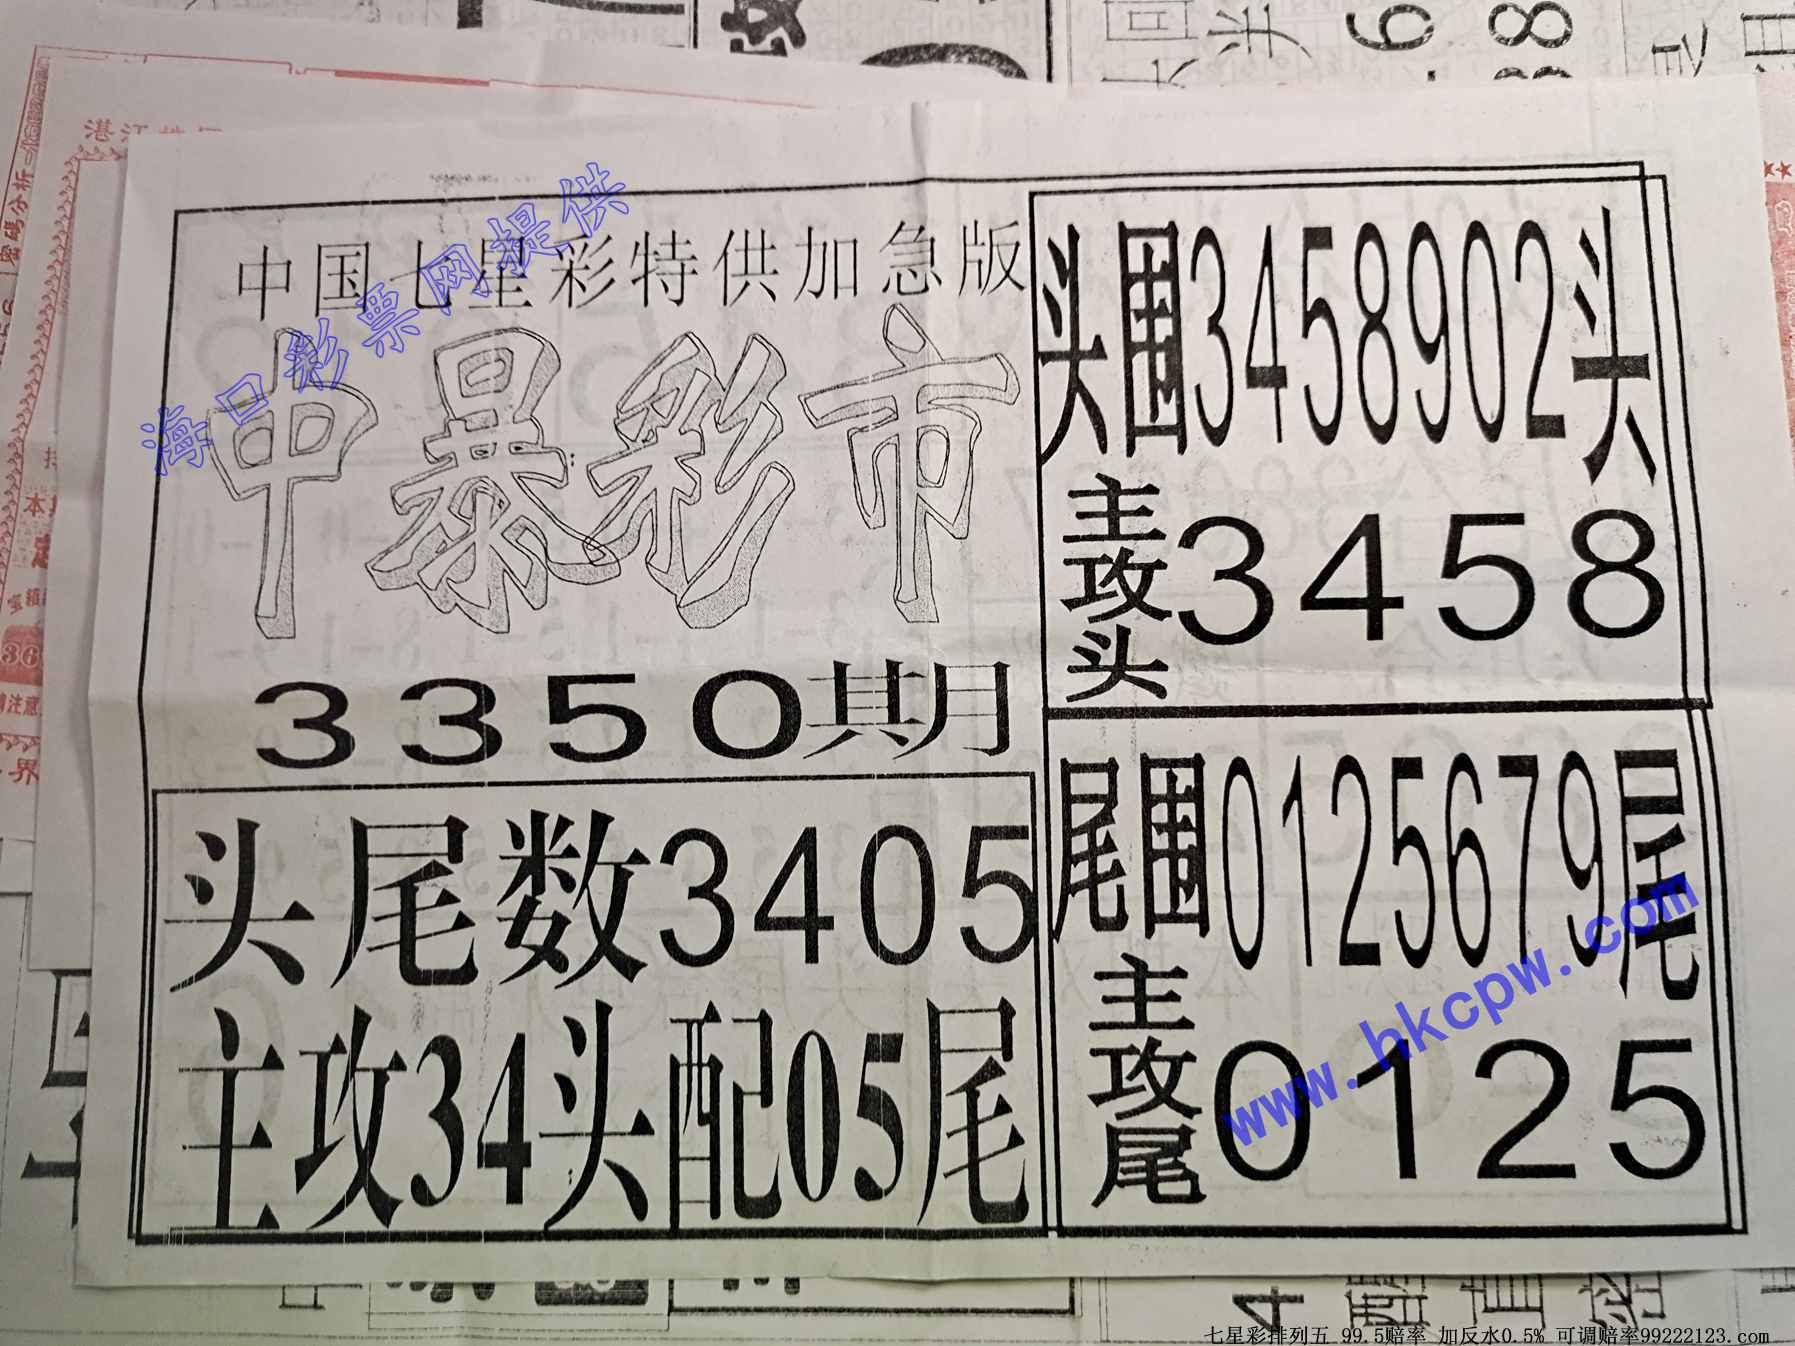 中国七星彩特供加急版
中暴彩市
3350期
头尾数3405
主攻34头配05尾
头围3458902头
主攻头3458
尾围0125679尾
主攻尾0125
海口彩票网提供
www.hkcpw.com
密码分析
七星彩排列五 99.5赔率 加反水0.5% 可调赔率99222123.com